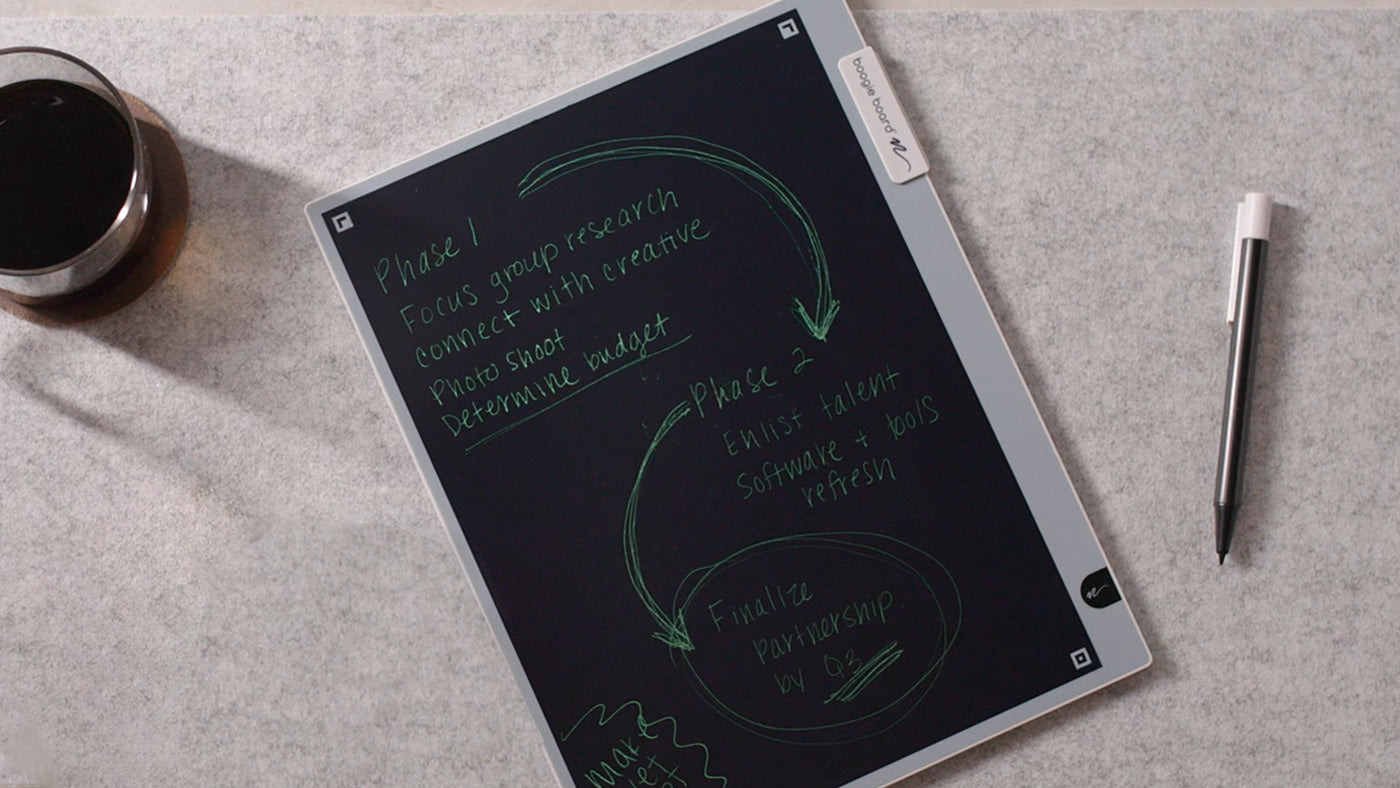 boogie board
Phase 1
Focus group research
connect with creative
Photo shoot
Determine budget
Phase 2
Enlist talent
Software + tools
refresh
Finalize
Partnership
by Q3
make